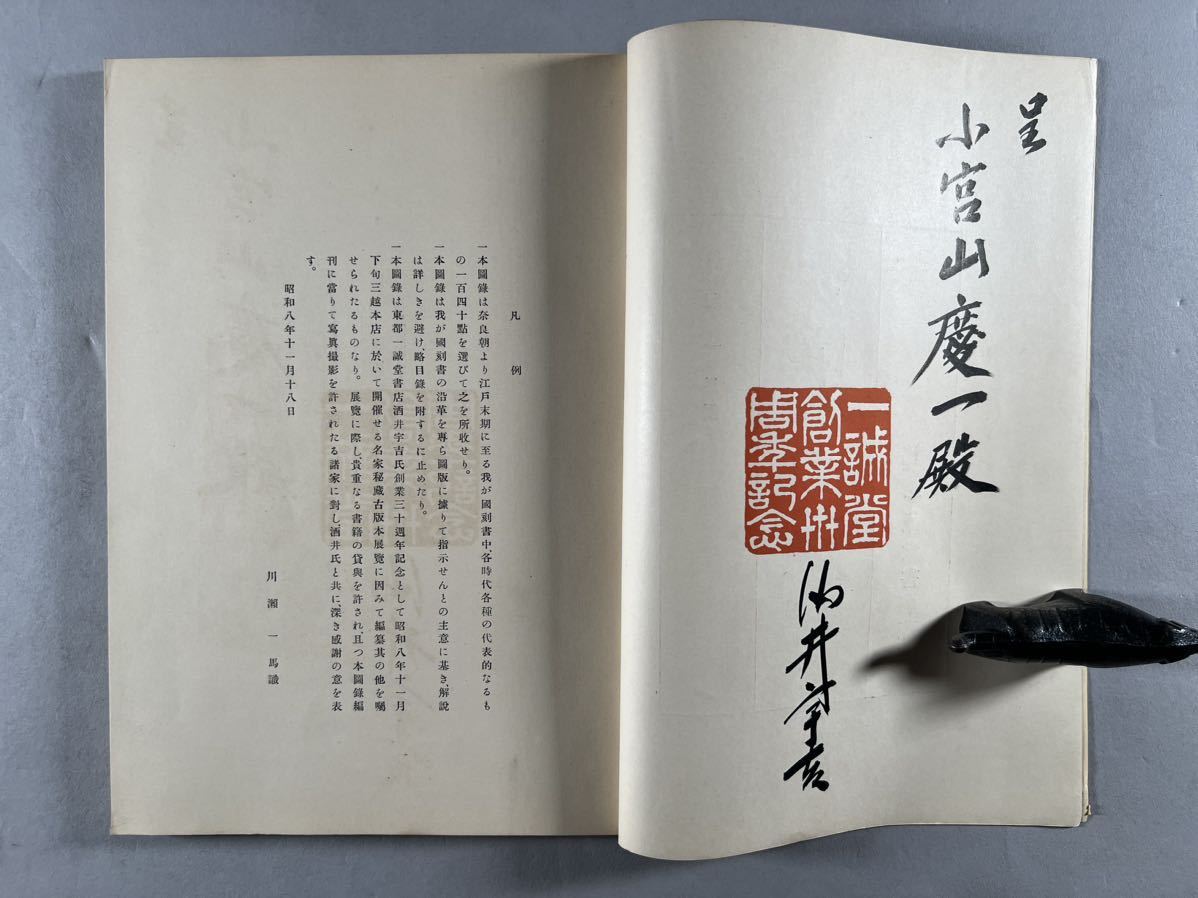 呈
小宮山慶一殿
一誠堂
創業卅
周年記念
酒井宇吉
凡例
一本圖錄は奈良朝より江戸末期に至る我が國刻書中、各時代各種の代表的なるも
の一百四十點を選びて之を所收せり。
一本圖錄は我が國刻書の沿革を專ら圖版に據りて指示せんとの主意に基き、解說
は詳しきを避け、略目錄を附するに止めたり。
一本圖錄は東都一誠堂書店酒井宇吉氏創業三十週年記念として昭和八年十一月
下旬三越本店に於いて開催せる名家秘藏古版本展覽に因みて編纂其の他を囑
せられたるものなり。展覽に際し、貴重なる書籍の貸與を許され、且つ本圖錄編
刊に當りて寫眞撮影を許されたる諸家に對し、酒井氏と共に、深き感謝の意を表
す。
昭和八年十一月十八日
川瀨一馬識